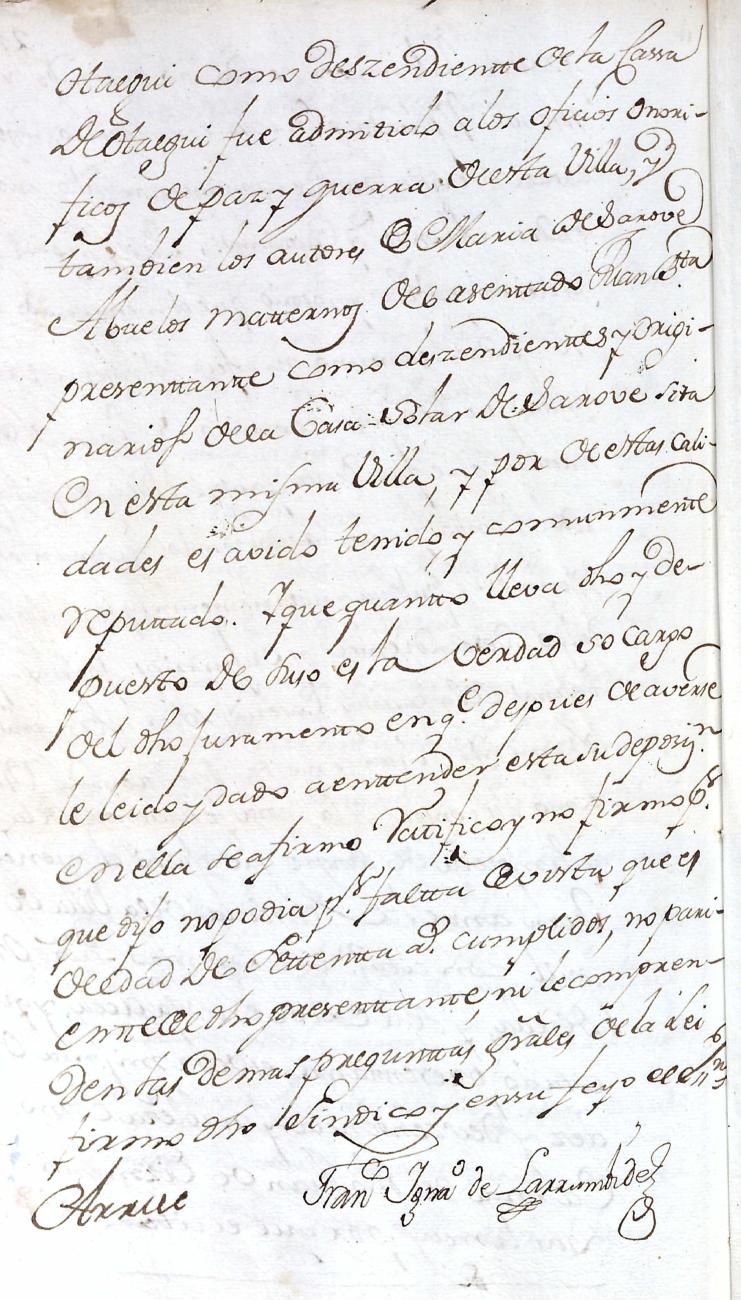 otaegui como deszendiente de la Cassa
de Otaegui fue admitido a los oficios onori-
ficos de paz y guerra de esta Villa, y
tambien los autores de Maria de Sarove
Abuelos matternos del asenttado Juan Bta
presenttante como deszendienttes y origi-
narios de la Casa Solar de Sarove sita
en esta misma Villa, y por de estas cali-
dades es avido tenido y comunmente
reputtado. Y que quantto lleva dho y de-
puesto de suso es la verdad so cargo
del dho juramento en q.e despues de averse
le leido y dado a enttender esta su deposiz.n
en ella se afirmo rattifico y no firmo p.r
que dijo no podia p.r faltta de vista que es
de edad de settentta a.s cumplidos, no pari-
ente del dho presenttante, ni le compren-
den las demas preguntas grales de la Lei
firmo dho Sindico y en su fe yo el ess.no
Fran.co Ygna.o de Larrumbide
Arrue